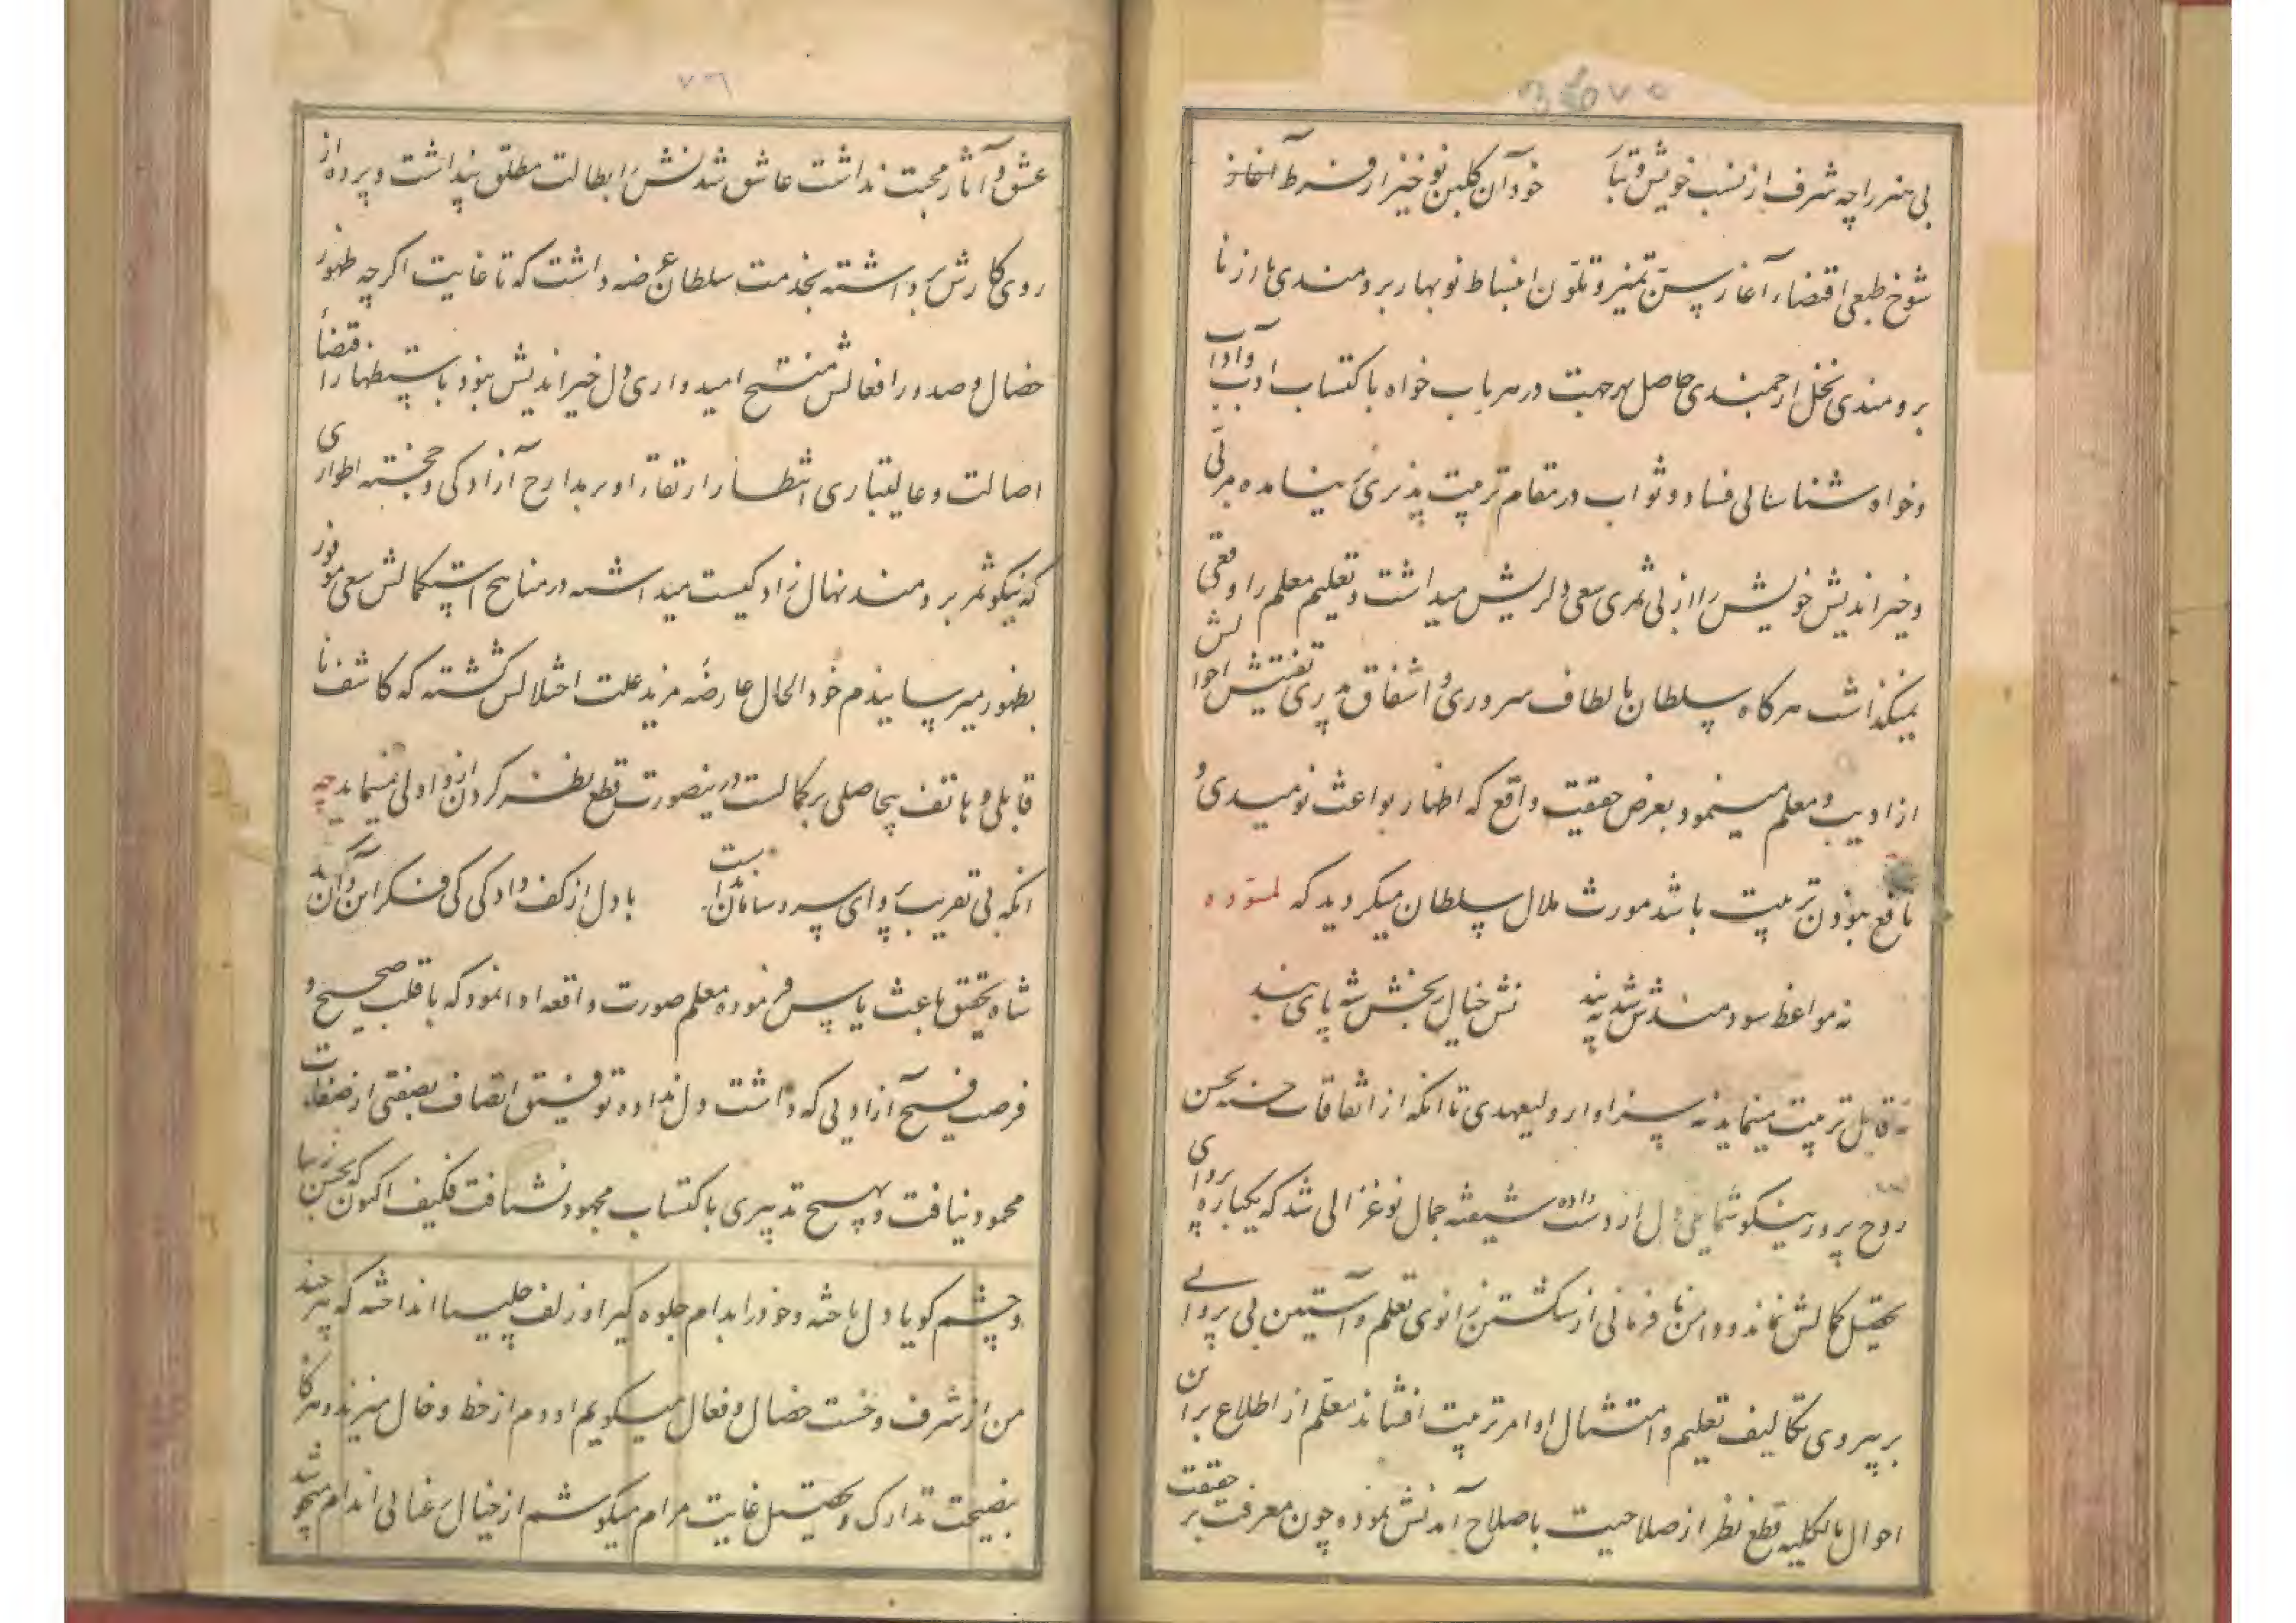 بی هنر را چه شرف از نسب خویش و تبا خود آن گلبن نوخیز از فرط آغاز
شوخ طبعی اقتضاء آغاز سن تمیز و تلون انبساط نوبهار برومندی ها از نا
برومندی نخل ارجمندی حاصل هر جهت در هر باب خواه باکتساب ادب و آداب
و خواه شناسائی فساد و ثواب در مقام تربیت پذیری نیامده مربی
و خیر اندیش خویش را از بی ثمری سعی دلریش میداشت و تعلیم معلم را وقعی
نمیگذاشت هرگاه سلطان بالطاف سروری و اشفاق پدری تفتیش احوالش
از ادیب و معلم مینمود بعرض حقیقت واقع که اظهار بواعث نومیدی و
نافع نبودن تربیت باشد مورث ملال سلطان میگردید که لمسوده
نه مواعظ سودمندش شد نه پند نش خیال بخشش شه پای بند
نه قابل تربیت مینماید نه سزاوار ولیعهدی تا آنکه از اتفاقات حسنه بحسن
روح پرور نیکو شمایلی دل از دست داده شیفته جمال نوغزالی شد که یکباره پروای
تحصیل کمالش نماند و دامن نافرمانی از شکستن زانوی تعلم و آستین بی پروائی
بر پیروی تکالیف تعلیم و امتثال اوامر تربیت افشاند معلم از اطلاع بر این
احوال بالکلیه قطع نظر از صلاحیت باصلاح آمدنش نموده چون معرفت بر حقیقت
۷۶
عشق و آثار محبت نداشت عاشق شدنش را بطالت مطلق پنداشت و پرده از
روی کارش برداشته بخدمت سلطان عرضه داشت که تا غایت اگرچه ظهور
خصال و صدور افعالش منتج امیدواری دل خیر اندیش نبود باستظهار اقتضاء
اصالت و عالیتباری انتظار ارتقاء او بر مدارج آزادگی و خجسته اطواری
که نیکو ثمر برومند نهال زادگیست میداشته در مناهج استکمالش سعی موفور
بظهور میرسانیدم خود الحال عارضه مزید علت اختلالش گشته که کاشف نا
قابلی و هاتف بیحاصلی بر کمالست درینصورت قطع نظر کردن از و اولی مینماید چه
آنکه بی تقریب پروای سر و سامان نداشت با دل از کف دادگی کی فکر این و آن کند
شاه تحقیق باعث یاس فرموده معلم صورت واقعه وانمود که با قلب صحیح و
فرصت فسیح آزادیی که داشت و دل نداده توفیق اتصاف بصفتی از صفات
محمود نیافت و بهیچ تدبیری باکتساب محمود نشتافت فکیف اکنون که بحسن زیبا
و چشم گویا دل باخته و خود را بدام جلوه گیرا و زلف چلیپا انداخته که هر چند
من از شرف و خست خصال و فعال میگویم او دم از خط و خال میزند و هر گاه
بنصیحت تدارک و تحصیل غایت مرام میکوشم از خیال رعنائی اندام میجوشد